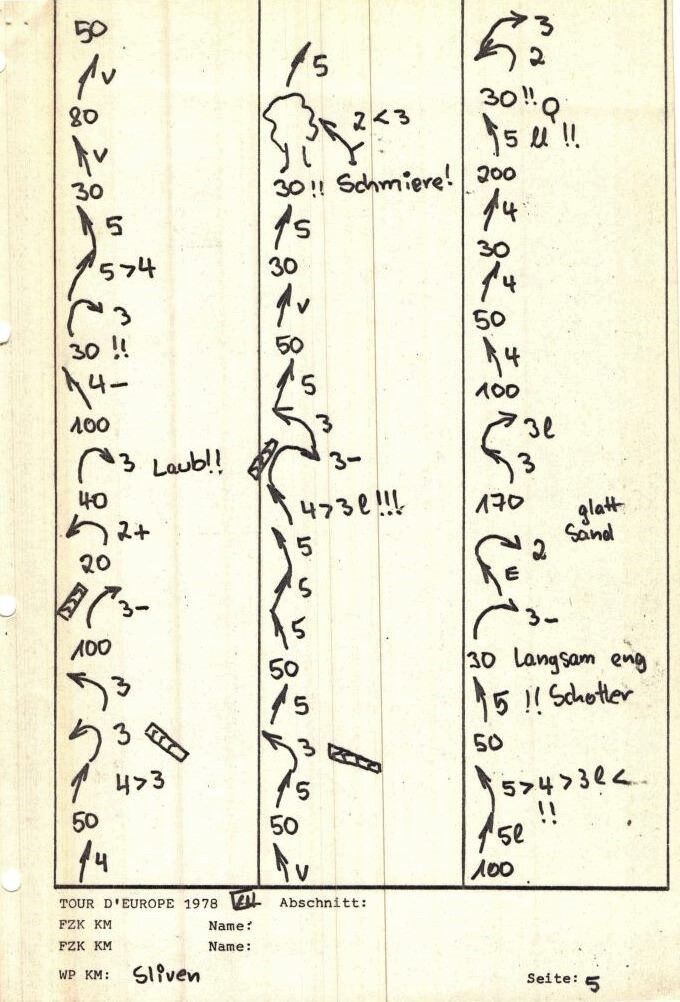 50
V
80
V
30
5
5>4
3
30 !!
4-
100
3 Laub!!
40
2+
20
3-
100
3
3
4>3
50
4
5
2<3
30!! Schmiere!
5
30
V
50
5
3
3-
4>3l!!!
5
5
5
50
5
3
5
50
V
3
2
30!!
5 ll !!
200
4
30
4
50
4
100
3l
3
170
glatt
Sand
2
E
3-
30 Langsam eng
5 !! Schotter
50
5>4>3l<
!!
5l
100
TOUR D'EUROPE 1978 Abschnitt:
FZK KM Name:
FZK KM Name:
WP KM: Sliven
Seite: 5